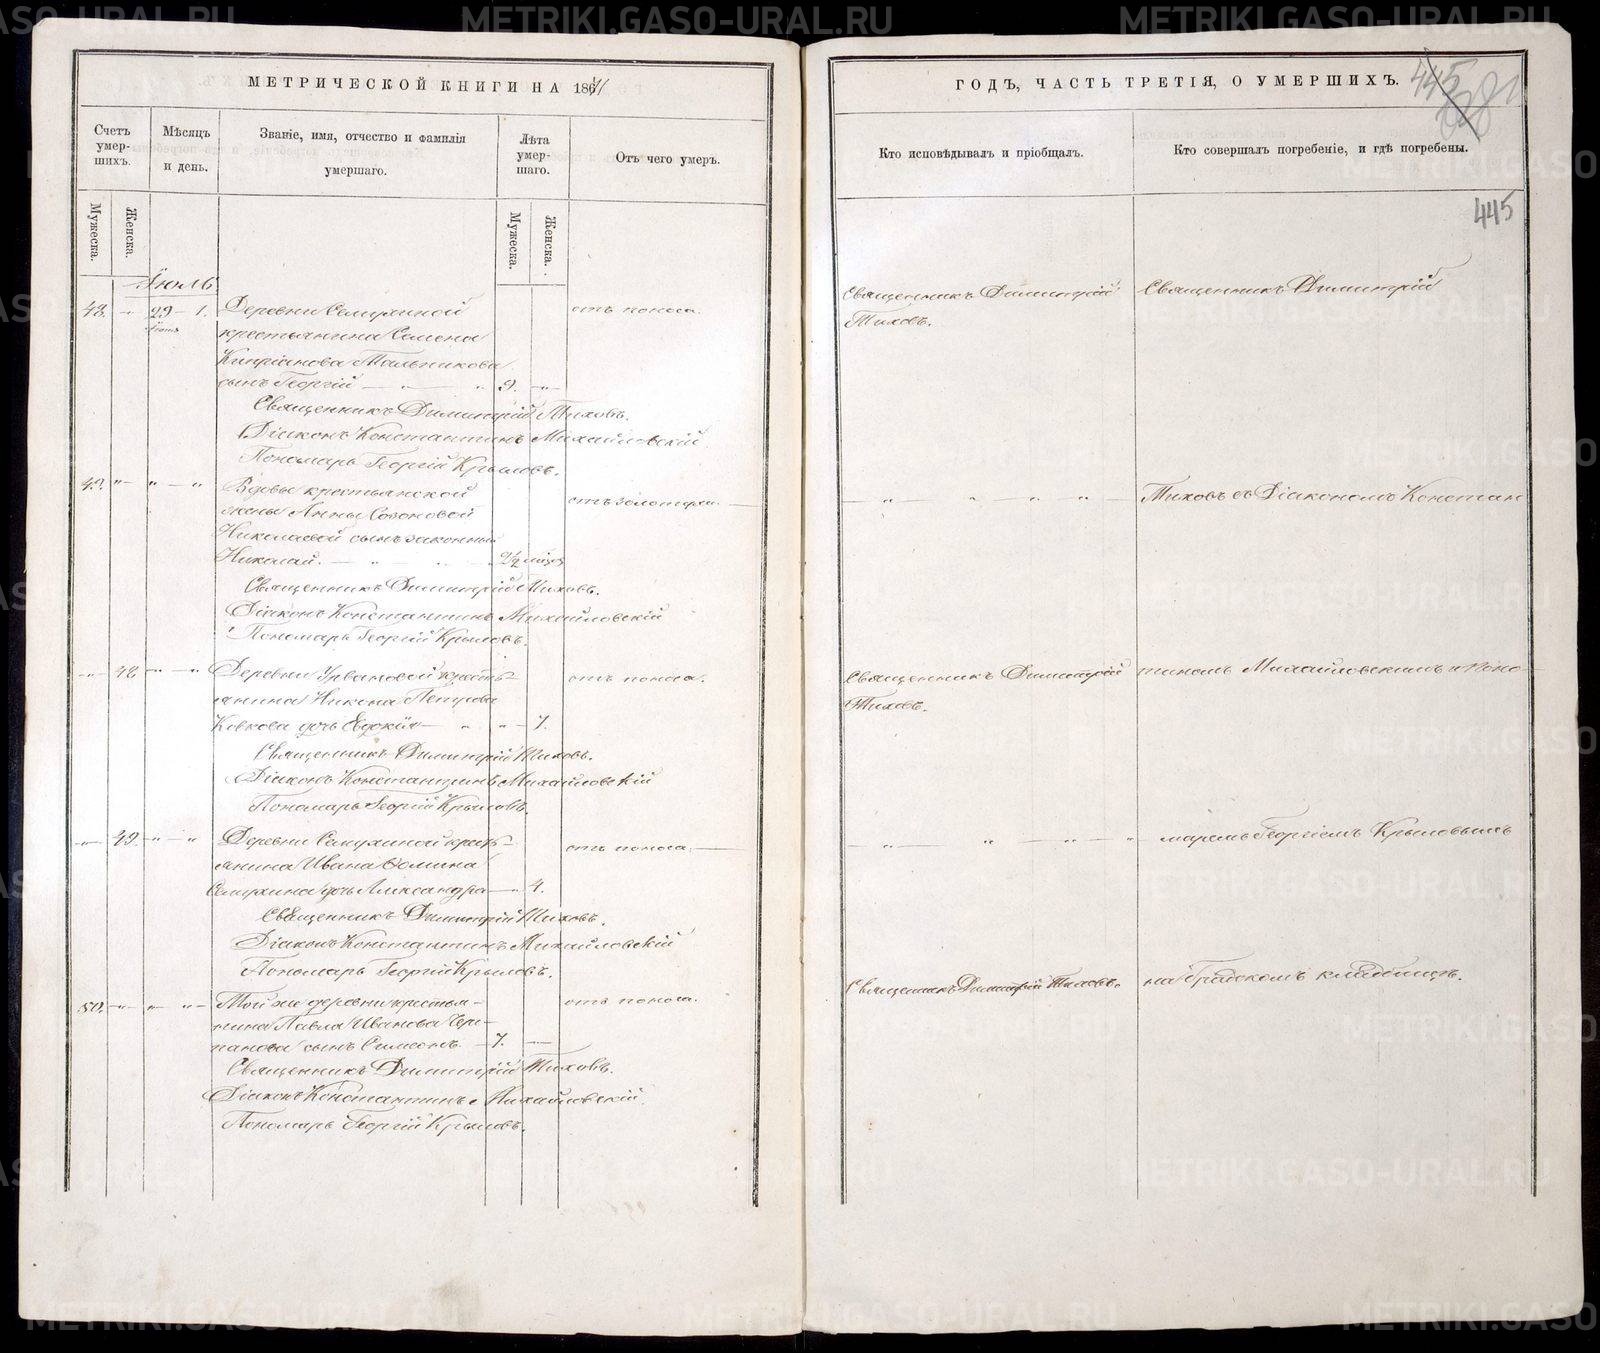 МЕТРИЧЕСКОЙ КНИГИ НА 186
Счетъ умер-шихъ.
Мѣсяцъ и день.
Званіе, имя, отчество и фамилія умершаго.
Лѣта умер-шаго.
Отъ чего умеръ.
Мужеска.
Женска.
Мужеска.
Женска.
Іюль
48. " 29 - 1. Деревни Семухиной отъ поноса.
Іюня крестьянина Семена
Кипріанова Тальникова
сынъ Георгій — " — " 9. — " —
Священникъ Димитрій Тиховъ.
Діаконъ Константинъ Михайловскій
Пономарь Георгій Крыловъ.
49. " " — " Вдовы крестьянской
жены Анны Созоновой отъ золотухи.
Николаевой сынъ законный
Николай. — "
Священникъ Димитрій Тиховъ.
Діаконъ Константинъ Михайловскій
Пономарь Георгій Крыловъ.
— 48 " — " Деревни Урвановой кресть- отъ поноса.
янина Никона Петрова
Ковкова дочь Евдокія — " " — 7.
Священникъ Димитрій Тиховъ.
Діаконъ Константинъ Михайловскій
Пономарь Георгій Крыловъ.
— 49. " — " Деревни Семухиной крестъ-
янина Ивана Ѳомина отъ поноса.
Семухина дочь Александра — " 4.
Священникъ Димитрій Тиховъ.
Діаконъ Константинъ Михайловскій
Пономарь Георгій Крыловъ.
50. " " " — Той же деревни крестья- отъ поноса.
нина Павла Иванова Чер-
панова сынъ Симеонъ — 7. —
Священникъ Димитрій Тиховъ.
Діаконъ Константинъ Михайловскій.
Пономарь Георгій Крыловъ.
ГОДЪ, ЧАСТЬ ТРЕТІЯ, О УМЕРШИХЪ.
445
Кто исповѣдывалъ и пріобщалъ.
Кто совершалъ погребеніе, и гдѣ погребены.
445
Священникъ Димитрій Священникъ Димитрій
Тиховъ.
— " — " — " — " — Тиховъ съ Діакономъ Констан
Священникъ Димитрій тиномъ Михайловскимъ и поно-
Тиховъ.
— " — " — " — " маремъ Георгіемъ Крыловымъ
Священникъ Димитрій Тиховъ. на Градскомъ кладбищѣ.
METRIKI.GASO-URAL.RU